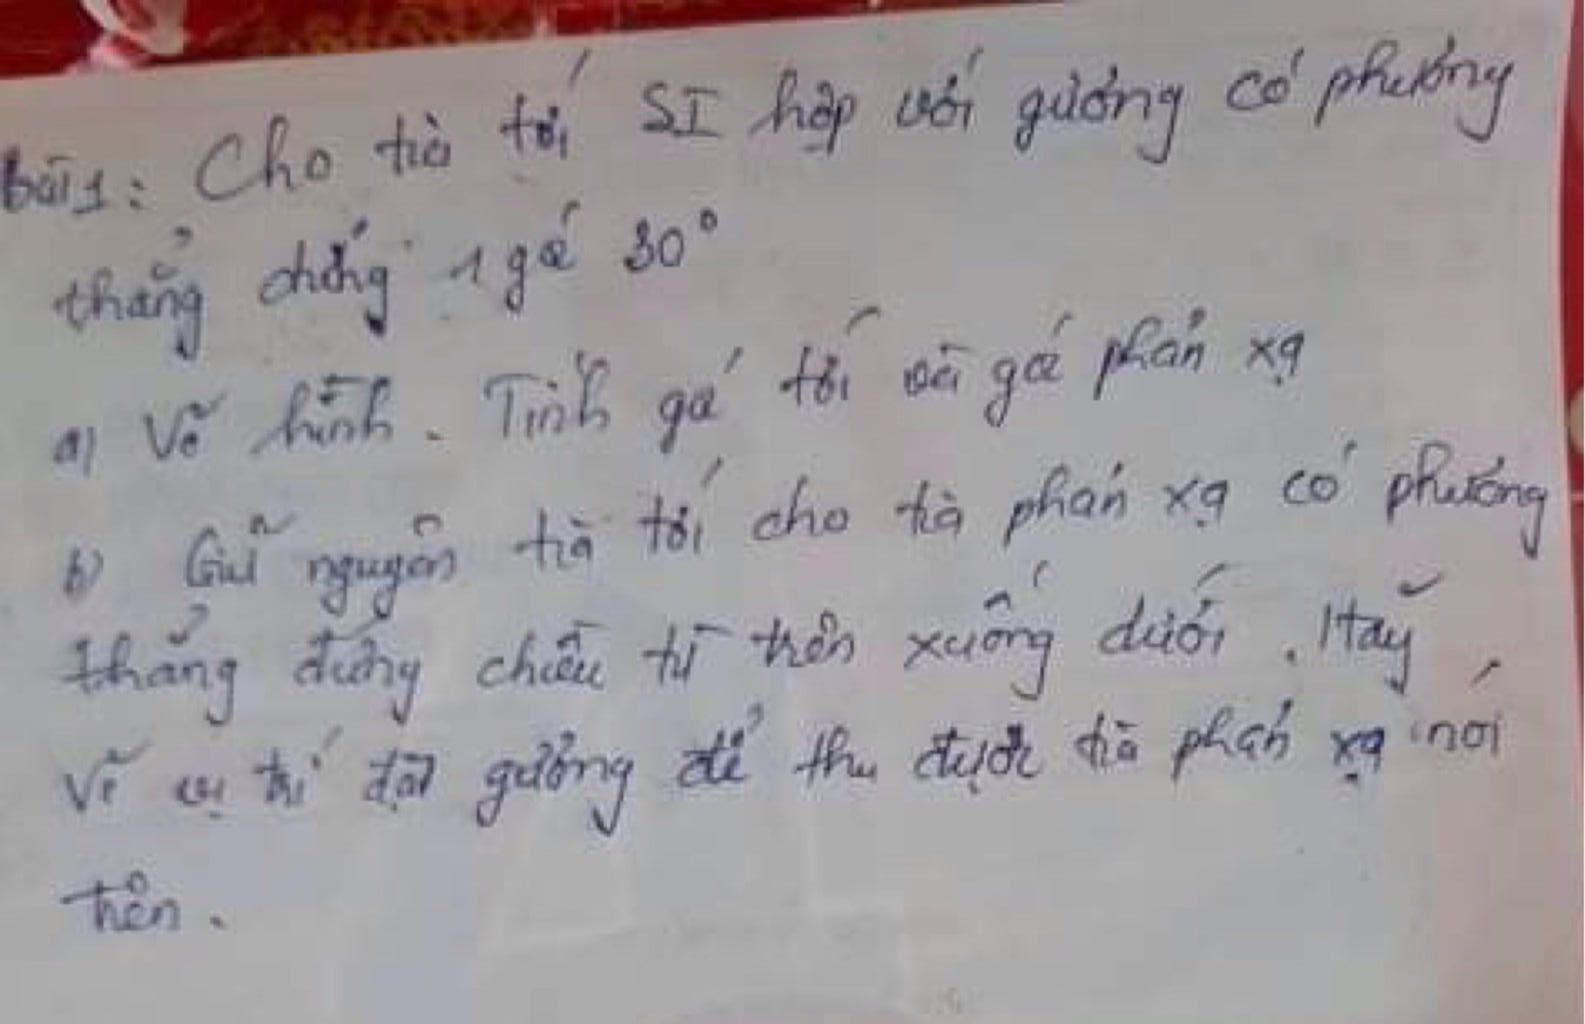 Bài 1: Cho tia tới SI hợp với gương có phương
thẳng đứng 1 góc 30°
a) Vẽ hình. Tính góc tới và góc phản xạ
b) Giữ nguyên tia tới cho tia phản xạ có phương
thẳng đứng chiều từ trên xuống dưới. Hãy
vẽ vị trí đặt gương để thu được tia phản xạ nói
trên.